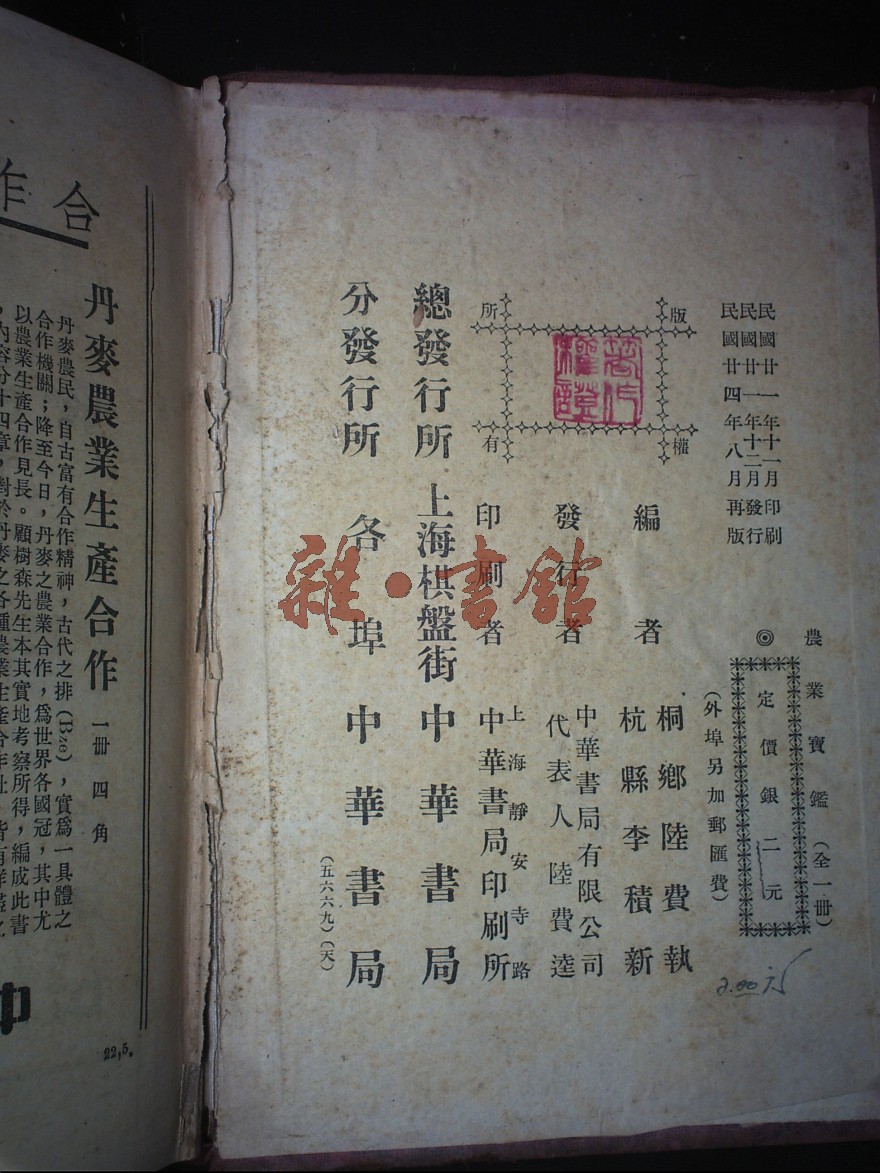 民國廿一年十一月印刷
民國廿一年十二月發行
民國廿四年八月再版
農業寶鑑(全一冊)
◎定價銀二元
(外埠另加郵匯費)
2.00元
版權所有
著作權證
編者
桐鄉陸費執
杭縣李積新
發行者
中華書局有限公司
代表人陸費逵
印刷者
上海靜安寺路
中華書局印刷所
總發行所 上海棋盤街 中華書局
分發行所 各埠中華書局
(五六六九)(天)
雜·書館
合作
丹麥農業生產合作 一冊四角
丹麥農民,自古富有合作精神,古代之排(Bze),實爲一具體之
合作機關;降至今日,丹麥之農業合作,爲世界各國冠,其中尤
以農業生產合作見長。顧樹森先生本其實地考察所得,編成此書
內容分十四章,對於丹麥之各種農業生產合作社
中
22,5.